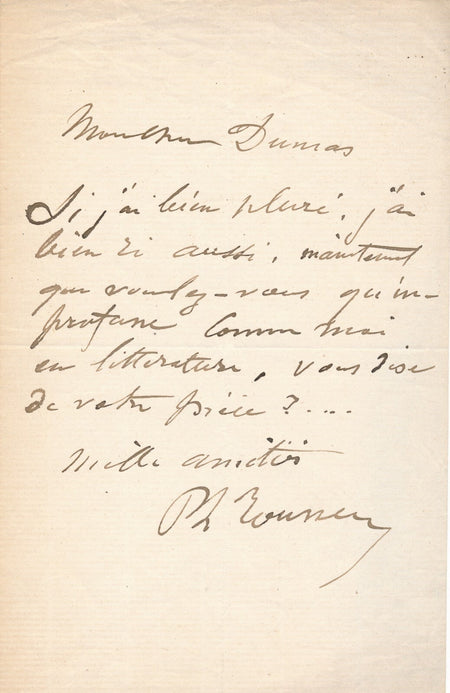 Mon cher Dumas
Si j'ai bien pleuré, j'ai
bien ri aussi, maintenant
que voulez-vous qu'un
profane comme moi
en littérature, vous dise
de votre pièce ?....
Mille amitiés
Ph Rousseau